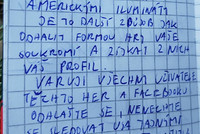 AMERICKÝMI ILUMINÁTY
JE TO DALŠÍ ZPŮSOB JAK
ODHALIT FORMOU HRY VAŠE
SOUKROMÍ A ZÍSKAT Z NICH
VÁŠ PROFIL.
VARUJI VŠECHNY UŽIVATELE
TĚCHTO HER A FACEBOOKU
ODHLAŠTE SE, NENECHTE
SE SLEDOVAT